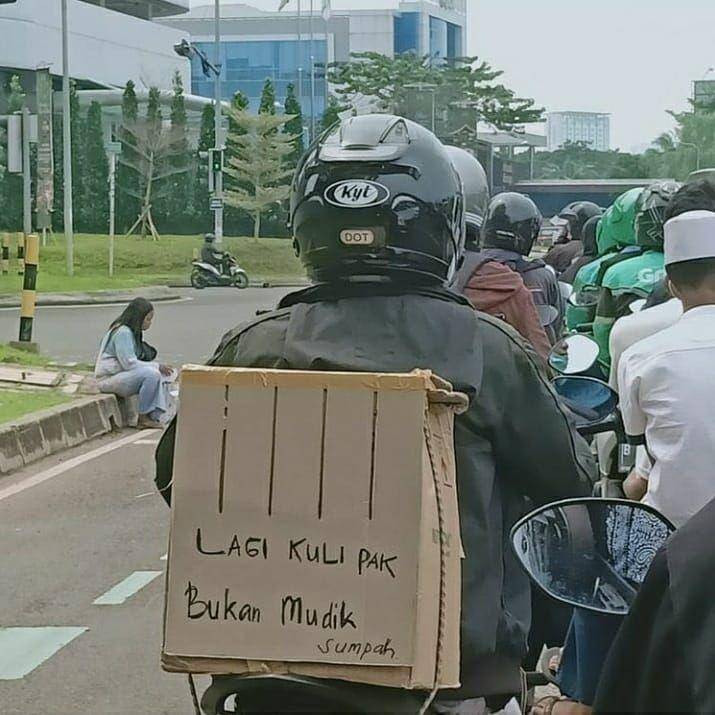 Kyt
DOT
LAGI KULI PAK
Bukan Mudik
sumpah